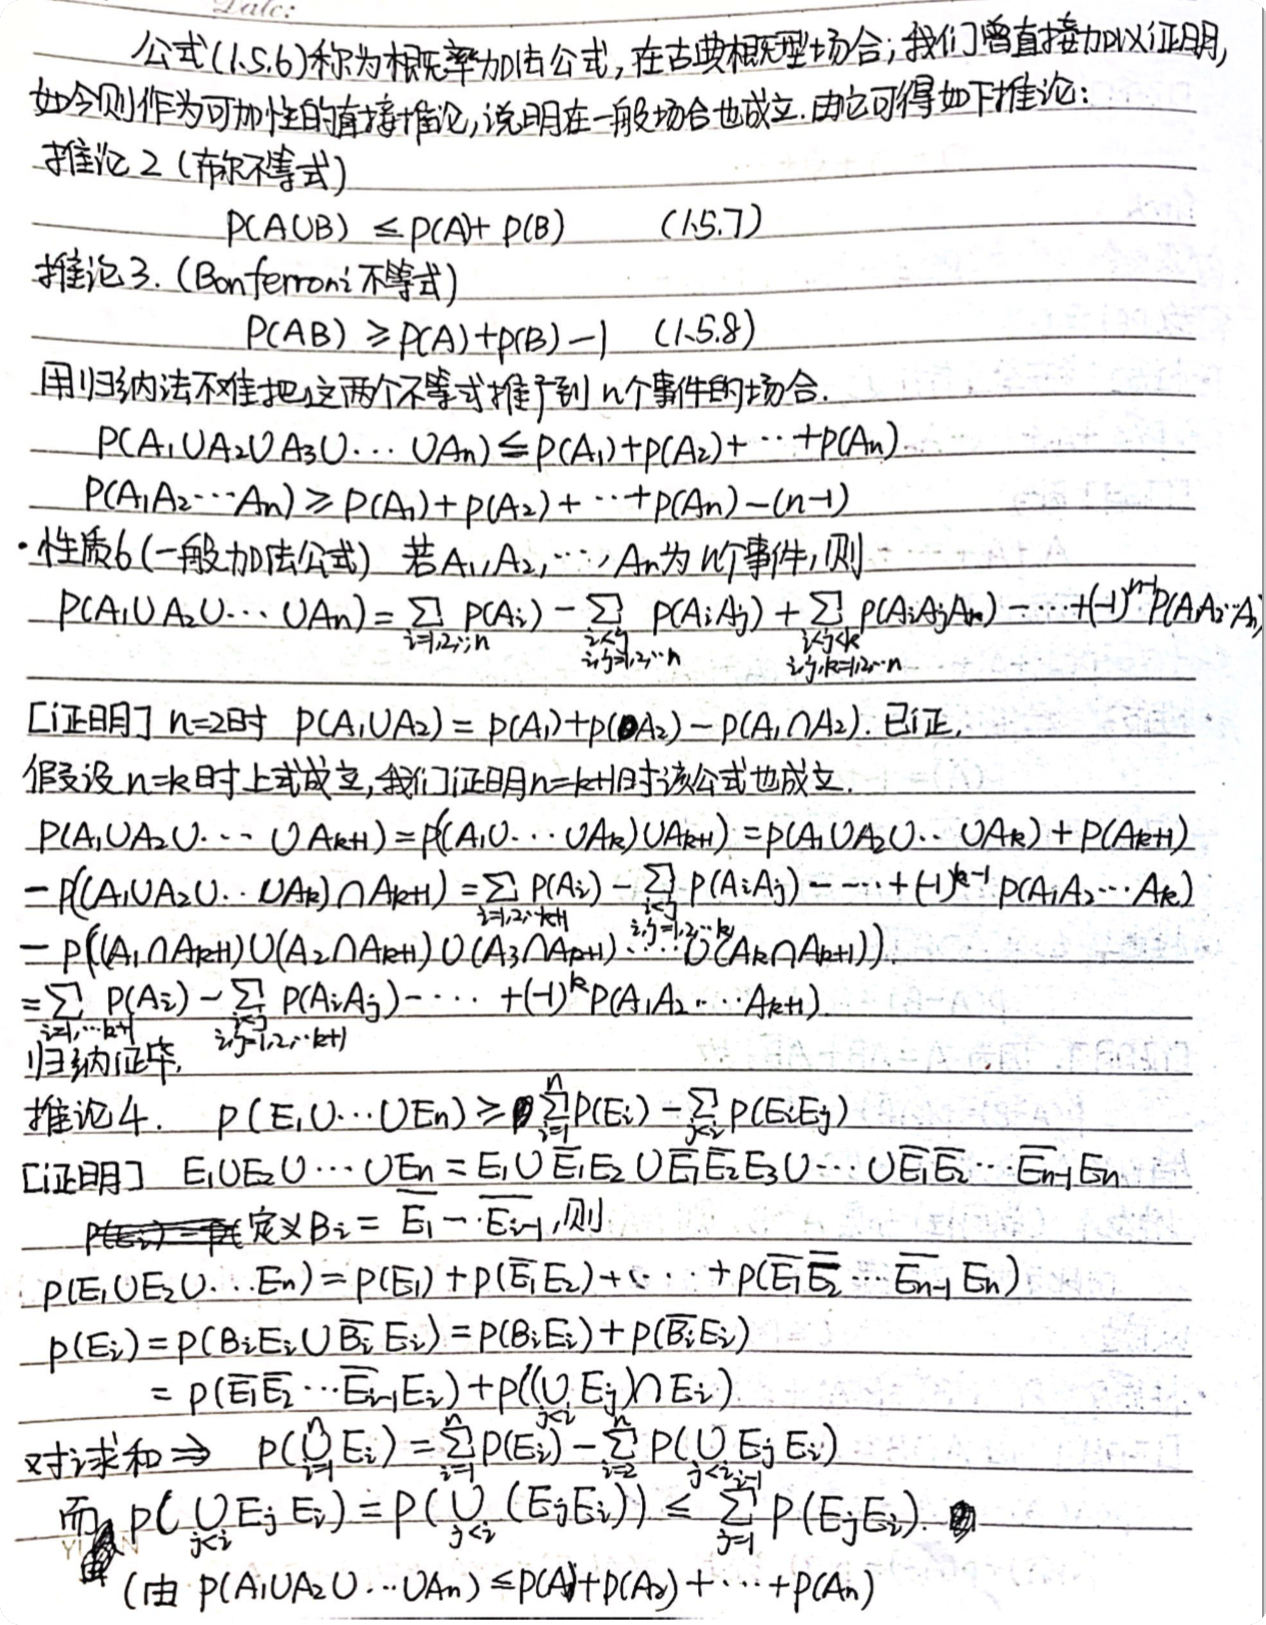 Date:
公式(1.5.6)称为概率加法公式,在古典概型场合;我们曾直接加以证明,
如今则作为可加性的直接推论,说明在一般场合也成立.由它可得如下推论:
推论2(布尔不等式)
P(A∪B) ≤ P(A)+ P(B) (1.5.7)
推论3.(Bonferroni不等式)
P(AB) ≥ P(A)+P(B)-1 (1.5.8)
用归纳法不难把这两个不等式推广到n个事件的场合.
P(A₁∪A₂∪A₃∪⋯∪Aₙ) ≤ P(A₁)+P(A₂)+⋯+P(Aₙ).
P(A₁A₂⋯Aₙ) ≥ P(A₁)+P(A₂)+⋯+P(Aₙ)-(n-1)
·性质6(一般加法公式) 若A₁,A₂,⋯,Aₙ为n个事件,则
P(A₁∪A₂∪⋯∪Aₙ) = ∑ P(Aᵢ) - ∑ P(AᵢAⱼ) + ∑ P(AᵢAⱼAₖ) - ⋯ +(-1)ⁿ⁻¹P(A₁A₂⋯Aₙ)
i=1,2,⋯,n i<j i<j<k
i,j=1,2,⋯n i,j,k=1,2,⋯n
[证明] n=2时 P(A₁∪A₂) = P(A₁)+P(A₂)-P(A₁∩A₂). 已证.
假设n=k时上式成立,我们证明n=k+1时该公式也成立.
P(A₁∪A₂∪⋯∪Aₖ₊₁)=P((A₁∪⋯∪Aₖ)∪Aₖ₊₁)=P(A₁∪A₂∪⋯∪Aₖ)+P(Aₖ₊₁)
-P((A₁∪A₂∪⋯∪Aₖ)∩Aₖ₊₁) = ∑ P(Aᵢ) - ∑ P(AᵢAⱼ) - ⋯ +(-1)ᵏ⁻¹ P(A₁A₂⋯Aₖ)
i=1,2,⋯k+1 i<j
i,j=1,2,⋯k
-P((A₁∩Aₖ₊₁)∪(A₂∩Aₖ₊₁)∪(A₃∩Aₖ₊₁)⋯∪(Aₖ∩Aₖ₊₁)).
= ∑ P(Aᵢ) - ∑ P(AᵢAⱼ) - ⋯ +(-1)ᵏP(A₁A₂⋯Aₖ₊₁).
i=1,⋯k+1 i<j
i,j=1,2,⋯k+1
归纳证毕.
推论4. P(E₁∪⋯∪Eₙ) ≥ ∑ⁿᵢ₌₁P(Eᵢ) - ∑ⱼ<ᵢ P(EᵢEⱼ)
[证明] E₁∪E₂∪⋯∪Eₙ = E₁∪E̅₁E₂∪E̅₁E̅₂E₃∪⋯∪E̅₁E̅₂⋯E̅ₙ₋₁Eₙ
定义Bᵢ = E̅₁⋯E̅ᵢ₋₁,则
P(E₁∪E₂∪⋯Eₙ) = P(E₁)+P(E̅₁E₂)+⋯+P(E̅₁E̅₂⋯E̅ₙ₋₁Eₙ)
P(Eᵢ) = P(BᵢEᵢ∪B̅ᵢEᵢ) = P(BᵢEᵢ)+P(B̅ᵢEᵢ)
= P(E̅₁E̅₂⋯E̅ᵢ₋₁Eᵢ)+P((∪ⱼ<ᵢ Eⱼ)∩Eᵢ).
对i求和 ⇒ P(∪ⁿᵢ₌₁Eᵢ) = ∑ⁿᵢ₌₁P(Eᵢ) - ∑ⁿᵢ₌₂ P(∪ⱼ<ᵢ EⱼEᵢ)
而 P(∪ⱼ<ᵢ EⱼEᵢ) = P(∪ⱼ<ᵢ (EⱼEᵢ)) ≤ ∑ⁱ⁻¹ⱼ₌₁ P(EⱼEᵢ).
(由 P(A₁∪A₂∪⋯∪Aₙ) ≤ P(A₁)+P(A₂)+⋯+P(Aₙ)